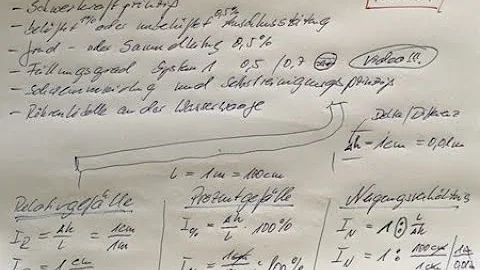 - Schwerkraftprinzip
- belüftet 1% oder unbelüftet 0,5% Anschlussleitung
- Grund- oder Sammelleitung 0,5%
- Füllungsgrad System 1 0,5 / 0,7 Video!!!
- Schwemmwirkung und Selbstreinigungsprinzip
- Röhrenlibelle an der Wasserwaage
Delta/Differenz
Δh = 1cm = 0,01m
L = 1m = 100cm
Relativgefälle
I_R = Δh/L = 1cm/1m
I_R = 1cm
Prozentgefälle
I_% = Δh/L · 100%
I_% = 1cm · 100%
Neigungsverhältnis
I_N = 1 : L/Δh
I_N = 1 : 100cm/1cm 1m/0,01m